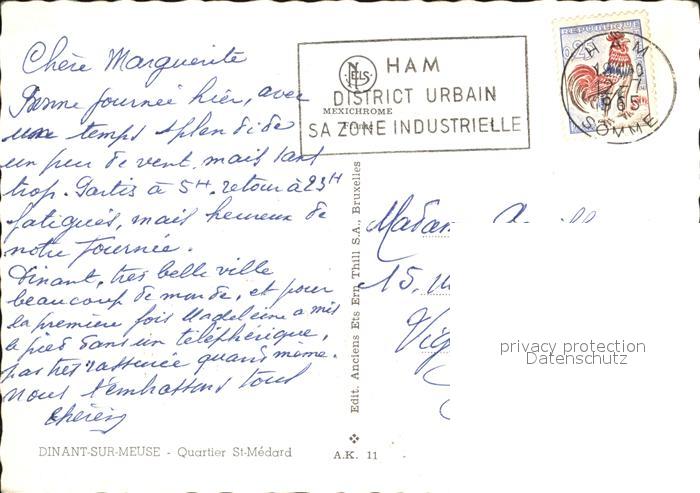 Chère Marguerite
Bonne journée hier, avec
un temps splendide
un peu de vent, mais tant
trop. Partis à 5H. retour à 23H
fatigués, mais heureux de
notre journée.
Dinant, très belle ville
beaucoup de monde, et pour
la première fois Madeleine a mis
le pied dans un téléphérique,
pas très rassurée quand même.
Nous t'embrassons tous
DINANT-SUR-MEUSE - Quartier St-Médard
NELS
MEXICHROME
HAM
DISTRICT URBAIN
SA ZONE INDUSTRIELLE
HAM
1965
SOMME
Edit. Anciens Ets Ern. Thill S.A., Bruxelles
A.K. 11
Madam
15,
privacy protection
Datenschutz